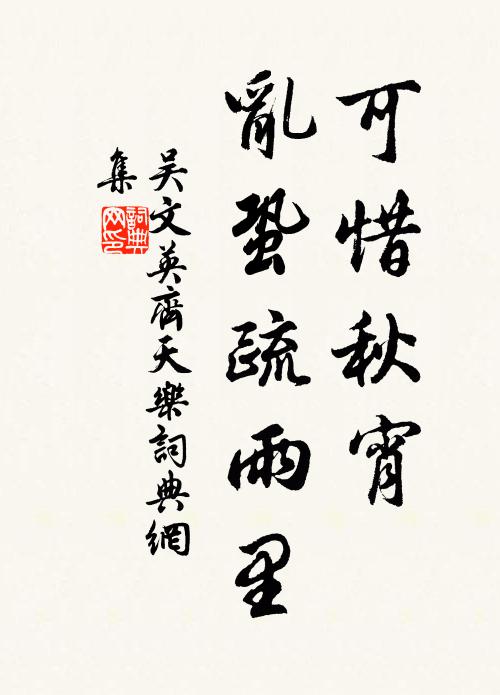 可惜秋宵
亂蛩疏雨里
吴文英齊天樂詞典網
集
詞典
网印